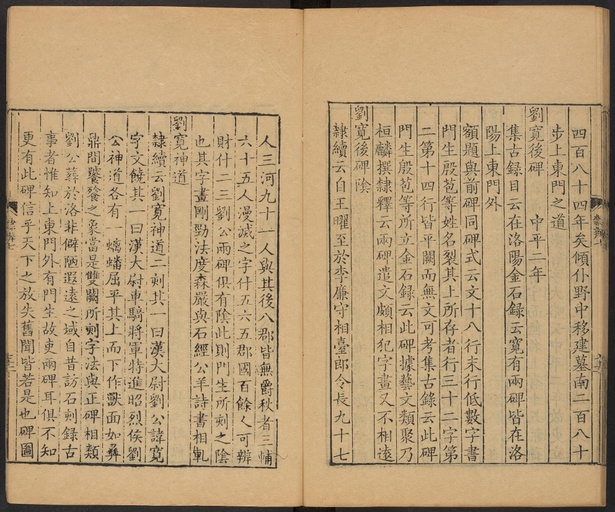 四百八十四年矣傾仆野中移建墓南二百八十
步上東門之道
劉寬後碑　中平二年
集古錄目云在洛陽金石錄云寬有兩碑皆在洛
陽上東門外
額題與前碑同碑式云文十八行末行低數字書
門生殷苞等姓名裂其上所存者行三十二字第
二第十四行皆平闕而無文可考集古錄云此碑
門生殷苞等所立金石錄云此碑據藝文類聚乃
桓麟撰隸釋云兩碑遣文頗相犯字畫又不相遠
劉寬後碑陰
隸續云自王曜至於李廉守相臺郎令長九十七
人三河九十一人與其後八郡皆無爵秩者三輔
六十五人漫滅之字什五六五郡國百餘人可辨
財什二三劉公兩碑俱有陰此則門生所刻之陰
也其字畫剛勁法度森嚴與石經公羊詩書相軋
劉寬神道
隸續云劉寬神道二刻其一曰漢大尉劉公諱寬
字文饒其一曰漢大尉車騎將軍特進昭烈侯劉
公神道各有一螭蟠屈乎其上而下作獸面如彝
鼎間饕餮之象當是雙闕所刻字法與正碑相類
劉公葬於洛非僻陋遐遠之域自昔訪石刻錄古
事者惟知上東門外有門生故吏兩碑耳俱不知
更有此碑信乎天下之放失舊聞皆若是也碑圖